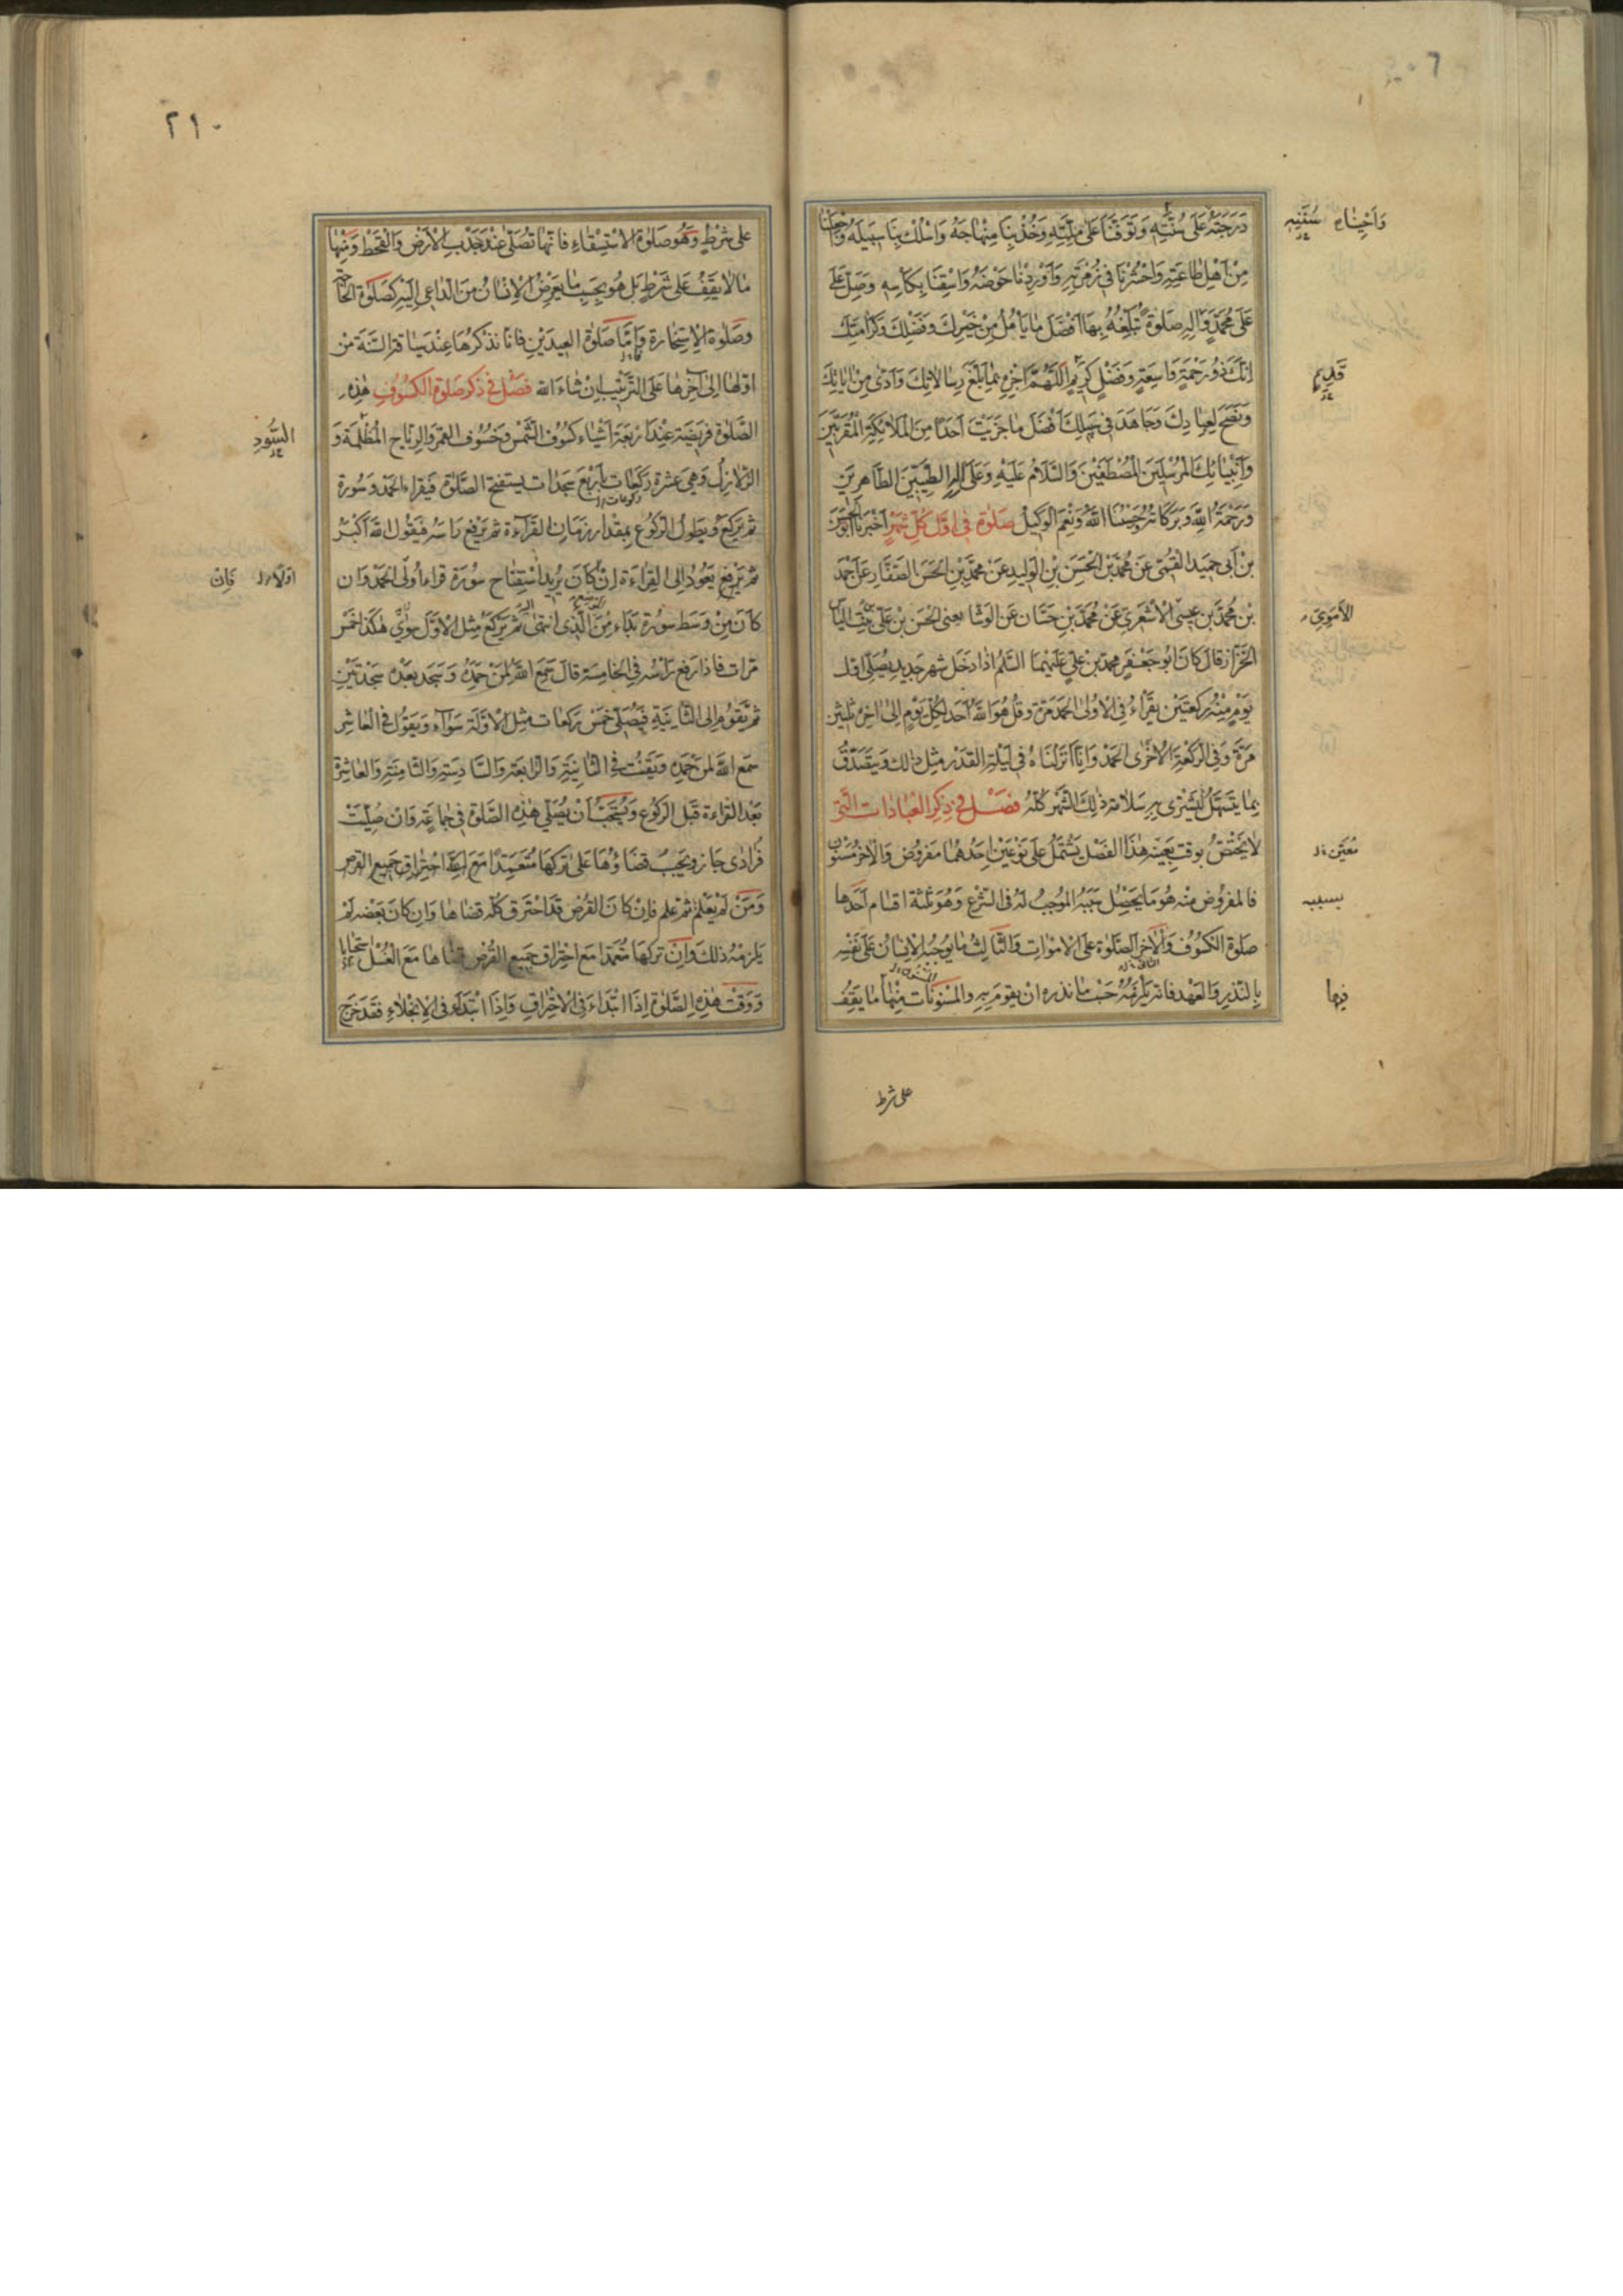 دَرَجَتَهُ عَلَى سُنَّتِهِ وَتَوَفَّنَا عَلَى مِلَّتِهِ وَخُذْ بِنَا مِنْهَاجَهُ وَاسْلُكْ بِنَا سَبِيلَهُ وَاجْعَلْنَا
وَاَحْيِنَاه سُنَّتِهِ
مِنْ اَهْلِ طَاعَتِهِ وَاحْشُرْنَا فِي زُمْرَتِهِ وَاَوْرِدْنَا حَوْضَهُ وَاسْقِنَا بِكَاْسِهِ وَصَلِّ عَلَى
عَلَى مُحَمَّدٍ وَالِهِ صَلوةً تُبَلِّغُهُ بِهَا اَفْضَلَ مَا يَاْمُلُ مِنْ خَيْرِكَ وَفَضْلِكَ وَكَرَامَتِكَ
اِنَّكَ ذُو رَحْمَةٍ وَاسِعَةٍ وَفَضْلٍ كَرِيمٍ اَللّهُمَّ اجْزِهِ بِمَا بَلَّغَ رِسَالَاتِكَ وَاَدّى مِنْ ايَاتِكَ
قَدِيمٍ
وَنَصَحَ لِعِبَادِكَ وَجَاهَدَ فِي سَبِيلِكَ اَفْضَلَ مَا جَزَيْتَ اَحَدًا مِنَ الْمَلَائِكَةِ الْمُقَرَّبِينَ
وَاَنْبِيَائِكَ الْمُرْسَلِينَ الْمُصْطَفَيْنَ وَالسَّلَامُ عَلَيْهِ وَعَلَى الِهِ الطَّيِّبِينَ الطَّاهِرِينَ
وَرَحْمَةُ اللهِ وَبَرَكَاتُهُ حَسْبُنَا اللهُ وَنِعْمَ الْوَكِيلُ صَلوة فِي اَوَّلِ كُلِّ شَهْرٍ اَخْبَرَنَا اَبُو الْحُسَيْنِ
بْنُ اَبِي جِيدٍ الْقُمِّيُّ عَنْ مُحَمَّدِ بْنِ الْحَسَنِ بْنِ الْوَلِيدِ عَنْ مُحَمَّدِ بْنِ الْحَسَنِ الصَّفَّارِ عَنْ اَحْمَدَ
بْنِ مُحَمَّدِ بْنِ عِيسَى الْاَشْعَرِيِّ عَنْ مُحَمَّدِ بْنِ حَسَّانَ عَنِ الْوَشَّا يعنى الْحَسَنَ بْنَ عَلِيِّ بْنِ بِنْتِ اِلْيَاسَ
الْخَزَّازِ قَالَ كَانَ اَبُو جَعْفَرٍ مُحَمَّدُ بْنُ عَلِيٍّ عَلَيْهِمَا السَّلَمُ اِذَا دَخَلَ شهر جَدِيدٌ يُصَلِّي اول
يَوْمٍ مِنْهُ رَكْعَتَيْنِ يَقْرَأُ فِي الْاُولى الْحَمْدَ مَرَّةً وَقُلْ هُوَ اللهُ اَحَدٌ لِكُلِّ يَوْمٍ اِلى اخِرِهِ ثَلثِينَ
مَرَّةً وَفِي الرَّكْعَةِ الْاُخْرَى الْحَمْدَ وَاِنَّا اَنْزَلْنَاهُ فِي لَيْلَةِ الْقَدْرِ مِثْلَ ذلِكَ وَيَتَصَدَّقُ
بِمَا يَتَسَهَّلُ يَشْتَرِي بِهِ سَلَامَةَ ذلِكَ الشَّهْرِ كُلِّهِ فَصْلٌ فِي ذِكْرِ الْعِبَادَاتِ الَّتِي
لَا يَخْتَصُّ بِوَقْتٍ بِعَيْنِهِ هذَا الْفَصْلُ يَشْتَمِلُ عَلَى نَوْعَيْنِ اَحَدُهُمَا مَفْرُوضٌ وَالْاخَرُ مَسْنُونٌ
مُعَيَّن
فالمفروض مِنْهُ هُوَ مَا يَحْصُلُ سَبَبُهُ الْمُوجِبُ لَهُ فِي الشَّرْعِ وَهُوَ ثلثة اقسام اَحَدُهَا
بسببه
صَلوةُ الْكُسُوفِ وَالْاخَرُ الصَّلوةُ عَلَى الْاَمْوَاتِ وَالثَّالِثُ مَا يُوجِبُهُ الْاِنْسَانُ عَلَى نَفْسِهِ
بِالنَّذْرِ وَالْعَهْدِ فَاِنَّهُ يَلْزَمُهُ حَسْبَ مَا نَذَرَهُ اَنْ يَقُومَ بِهِ وَالْمَسْنُونَاتُ مِنْهَا مَا يَقِفُ
فيها
على شرط
٢١٠
عَلَى شَرْطٍ وَهُوَ صَلوةُ الْاِسْتِسْقَاءِ فَاِنَّهَا تُصَلّى عِنْدَ جَدْبِ الْاَرْضِ وَالْقَحْطِ وَمِنْهَا
مَا لَا يَقِفُ عَلَى شَرْطٍ بَلْ هُوَ بِحَسَبِ مَا يَعْرِضُ لِلْاِنْسَانِ مِنَ الدَّاعِي اِلَيْهِ كَصَلوةِ الْحَاجَةِ
وَصَلوةِ الْاِسْتِخَارَةِ وَاَمَّا صَلوةُ الْعِيدَيْنِ فَاِنَّا نَذْكُرُهَا عِنْدَ سِيَاقَةِ السَّنَةِ مِنْ
اَوَّلِهَا اِلى آخِرِهَا عَلَى التَّرْتِيبِ اِنْ شَاءَ الله فَصْلٌ فِي ذِكْرِ صَلوةِ الْكُسُوفِ هذِهِ
الصَّلوةُ فَرِيضَةٌ عِنْدَ اَرْبَعَةِ اَشْيَاءَ كُسُوفِ الشَّمْسِ وَخُسُوفِ الْقَمَرِ وَالرِّيَاحِ الْمُظْلِمَةِ وَ
السُّودِ
الزَّلَازِلِ وَهِيَ عَشْرُ رَكَعَاتٍ بِاَرْبَعِ سَجَدَاتٍ يَسْتَفْتِحُ الصَّلوةَ فَيَقْرَاءُ الْحَمْدَ وَسُورَةً
ثُمَّ يَرْكَعُ وَيُطَوِّلُ الرُّكُوعَ بِمِقْدَارِ زَمَانِ الْقَرَاءَةِ ثُمَّ يَرْفَعُ رَاْسَهُ فَيَقُولُ اللهُ اَكْبَرُ
ثُمَّ يَرْفَعُ يَعُودُ اِلَى الْقِرَاءَةِ اِنْ كَانَ يُرِيدُ اسْتِفْتَاحَ سُورَةٍ قَرَأَ اَوَّلَى الْحَمْدَ وَاِنْ
اوَّلاً فَاِنْ
كَانَ مِنْ وَسَطِ سُورَةٍ بَدَأَ مِنَ الَّذِي انْتَهى ثُمَّ يَرْكَعُ مِثْلَ الْاَوَّلِ سَوَاءً هكَذَا خَمْسَ
مَرَّاتٍ فَاِذَا رَفَعَ رَاْسَهُ فِي الْخَامِسَةِ قَالَ سَمِعَ اللهُ لِمَنْ حَمِدَهُ وَسَجَدَ بَعْدَهُ سَجْدَتَيْنِ
ثُمَّ يَقُومُ اِلَى الثَّانِيَةِ فَيُصَلِّي خَمْسَ رَكَعَاتٍ مِثْلَ الْاَوَّلَةِ سَوَاءً وَيَقُولُ فِي الْعَاشِرِ
سَمِعَ اللهُ لِمَنْ حَمِدَهُ وَيَقْنُتُ فِي الثَّانِيَةِ وَالرَّابِعَةِ وَالسَّادِسَةِ وَالثَّامِنَةِ وَالْعَاشِرَةِ
بَعْدَ الْقِرَاءَةِ قَبْلَ الرُّكُوعِ وَيُسْتَحَبُّ اَنْ يُصَلِّيَ هذِهِ الصَّلوةَ فِي جَمَاعَةٍ وَاِنْ صُلِّيَتْ
فُرَادى جَازَ وَيَجِبُ قَضَاؤُهَا عَلَى تَرْكِهَا مُتَعَمِّدًا مَعَ احْتِرَاقِ جَمِيعِ الْقُرْصِ
وَمَنْ لَمْ يَعْلَمْ ثُمَّ عَلِمَ فَاِنْ كَانَ الْقُرْصُ قَدِ احْتَرَقَ كُلُّهُ قَضَاهَا وَاِنْ كَانَ بَعْضُهُ لَمْ
يَلْزَمْهُ ذلِكَ وَاِنْ تَرَكَهَا مُتَعَمِّدًا مَعَ احْتِرَاقِ جَمِيعِ الْقُرْصِ قَضَاهَا مَعَ الْغُسْلِ اسْتِحْبَابًا
وَوَقْتُ هذِهِ الصَّلوةِ اِذَا ابْتَدَاَ فِي الْاِحْتِرَاقِ وَاِذَا ابْتَدَاَ فِي الْاِنْجِلَاءِ فَقَدْ خَرَجَ